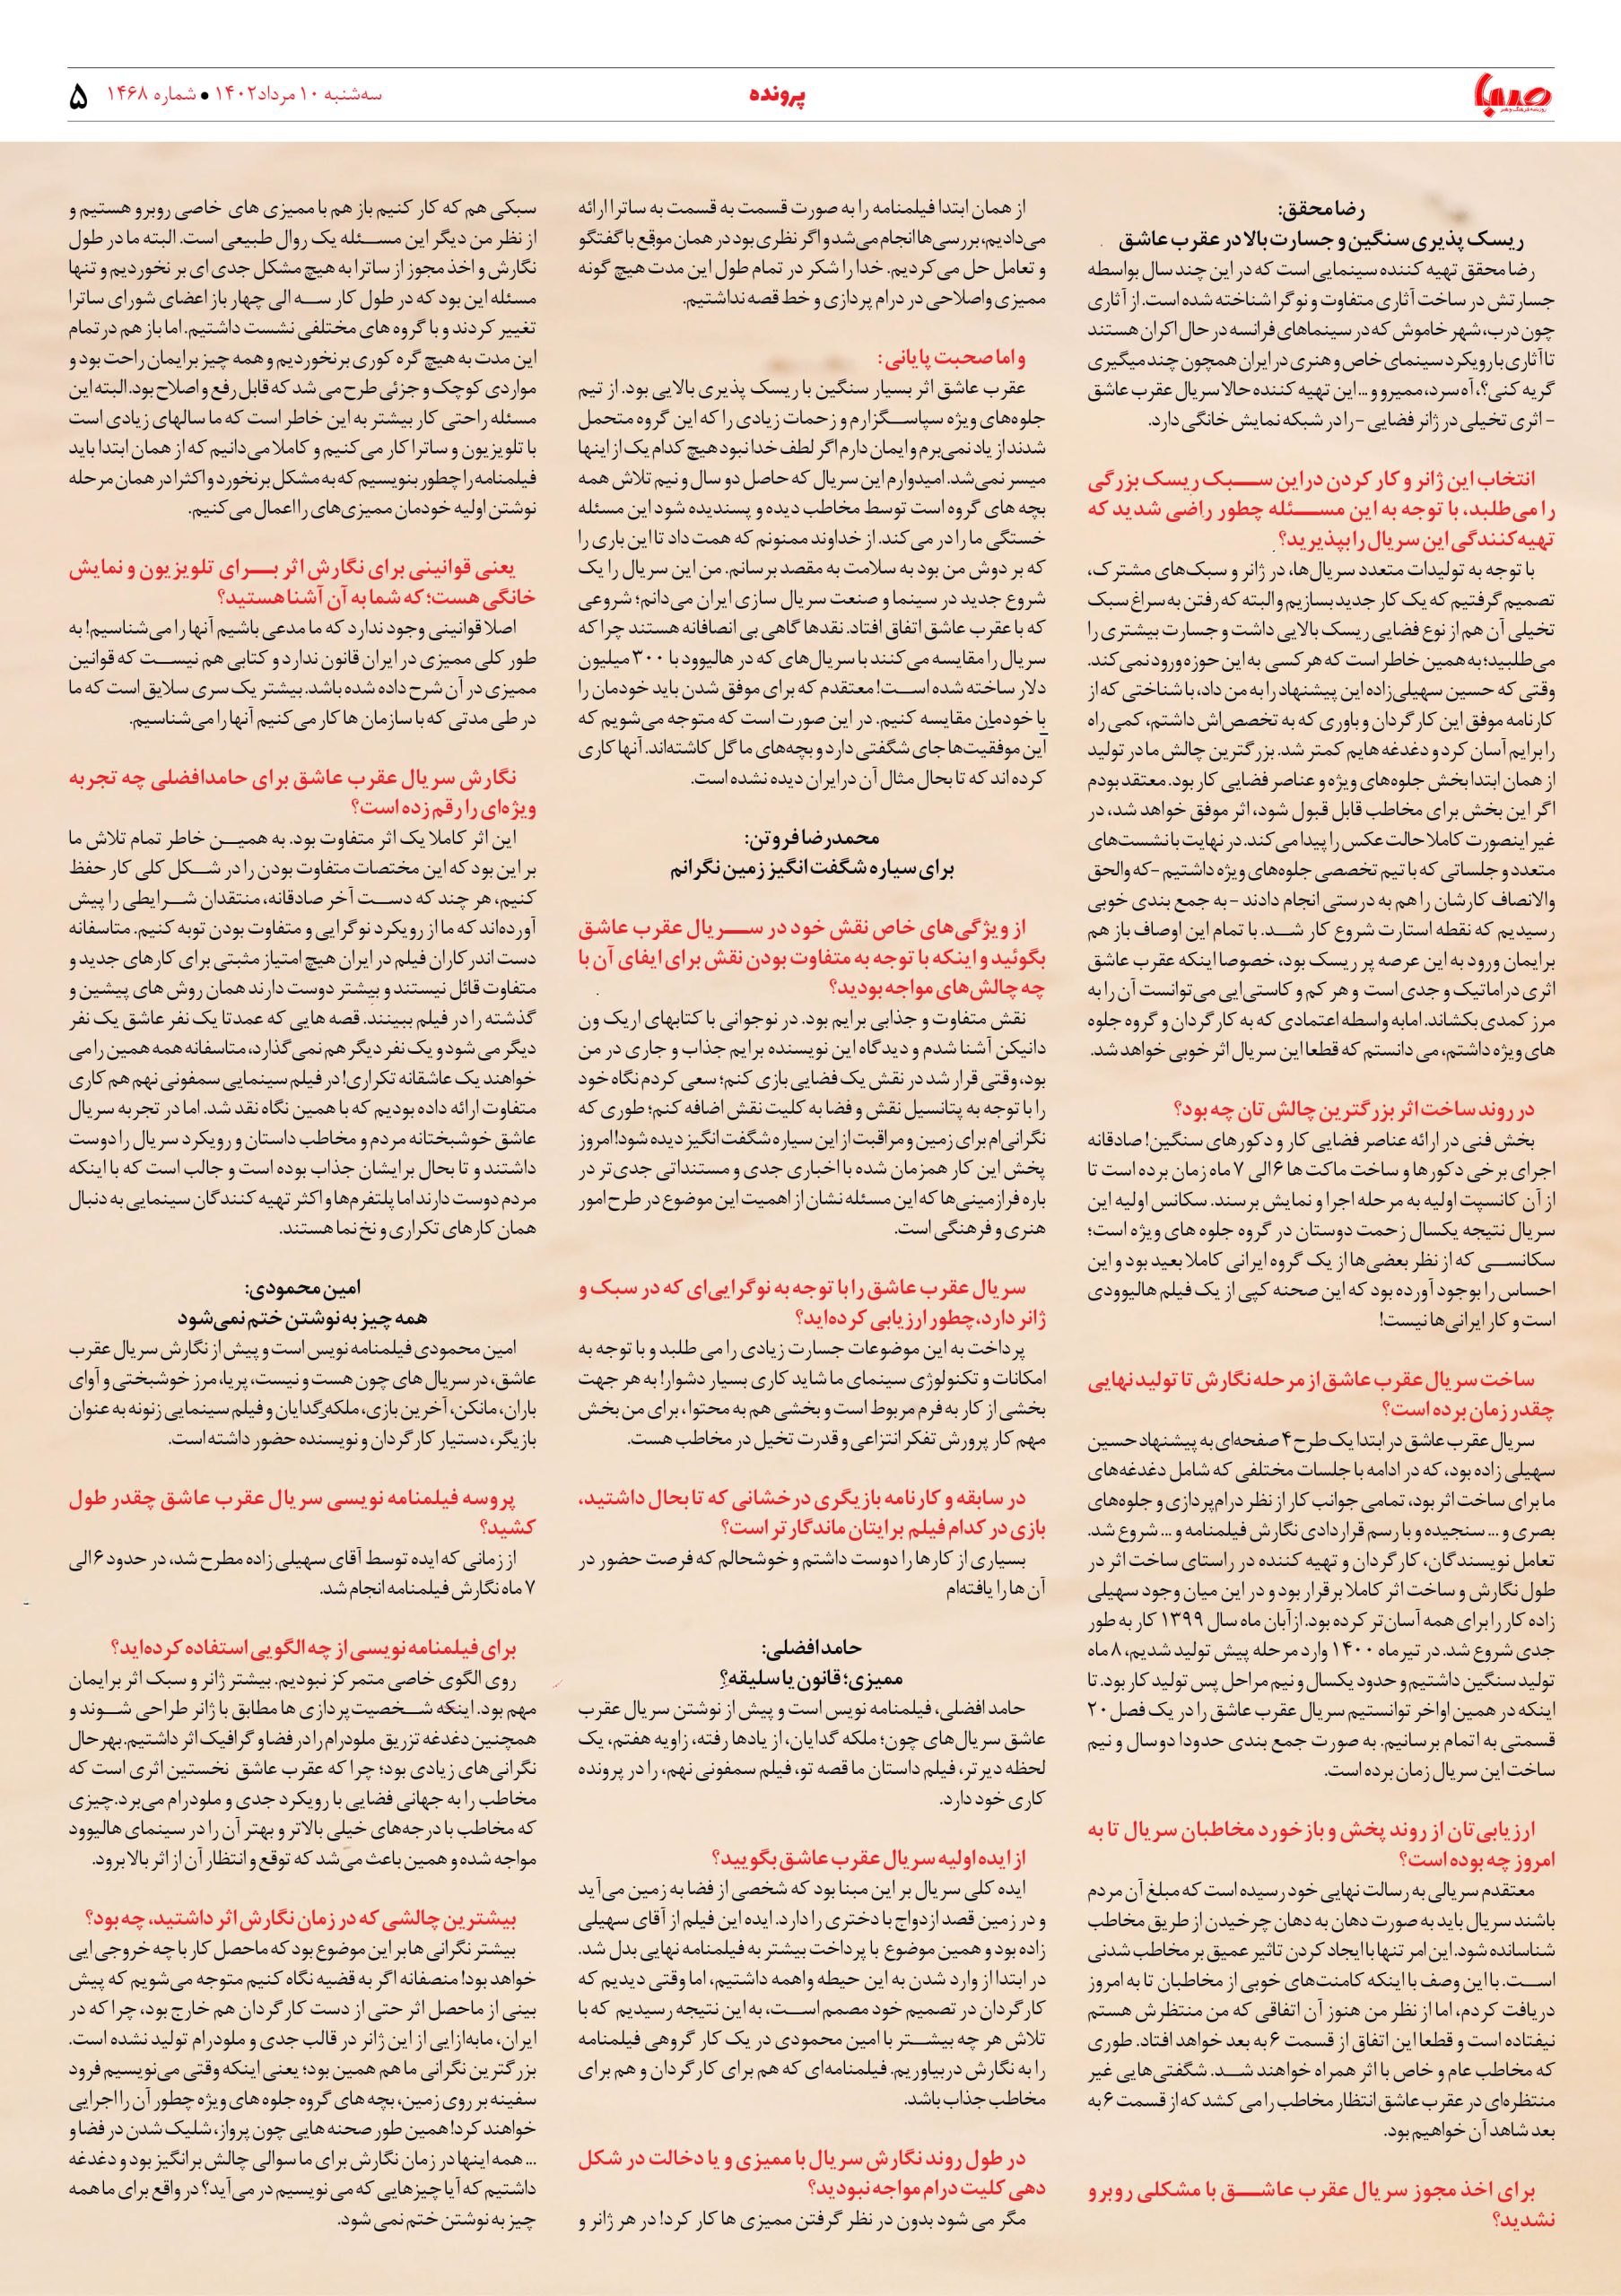 صبا
روزنامه فرهنگ و هنر
پرونده
سه‌شنبه ۱۰ مرداد ۱۴۰۲ ● شماره ۱۴۶۸
۵
رضا محقق:
ریسک پذیری سنگین و جسارت بالا در عقرب عاشق
رضا محقق تهیه کننده سینمایی است که در این چند سال بواسطه
جسارتش در ساخت آثاری متفاوت و نوگرا شناخته شده است. از آثاری
چون درب، شهر خاموش که در سینماهای فرانسه در حال اکران هستند
تا آثاری با رویکرد سینمای خاص و هنری در ایران همچون چند میگیری
گریه کنی؟، آه سرد، ممیرو و ... این تهیه کننده حالا سریال عقرب عاشق
- اثری تخیلی در ژانر فضایی - را در شبکه نمایش خانگی دارد.
انتخاب این ژانر و کار کردن دراین ســـبک ریسک بزرگی
را می‌طلبد، با توجه به این مســـئله چطور راضی شدید که
تهیه‌کنندگی این سریال را بپذیرید؟
با توجه به تولیدات متعدد سریال‌ها، در ژانر و سبک‌های مشترک،
تصمیم گرفتیم که یک کار جدید بسازیم والبته که رفتن به سراغ سبک
تخیلی آن هم از نوع فضایی ریسک بالایی داشت و جسارت بیشتری را
می‌طلبید؛ به همین خاطر است که هر کسی به این حوزه ورود نمی کند.
وقتی که حسین سهیلی‌زاده این پیشنهاد را به من داد، با شناختی که از
کارنامه موفق این کارگردان و باوری که به تخصص‌اش داشتم، کمی راه
را برایم آسان کرد و دغدغه هایم کمتر شد. بزرگترین چالش ما در تولید
از همان ابتدا بخش جلوه‌های ویژه و عناصر فضایی کار بود. معتقد بودم
اگر این بخش برای مخاطب قابل قبول شود، اثر موفق خواهد شد، در
غیر اینصورت کاملا حالت عکس را پیدا می کند. در نهایت با نشست‌های
متعدد و جلساتی که با تیم تخصصی جلوه‌های ویژه داشتیم -که والحق
والانصاف کارشان را هم به درستی انجام دادند - به جمع بندی خوبی
رسیدیم که نقطه استارت شروع کار شـــد. با تمام این اوصاف باز هم
برایمان ورود به این عرصه پر ریسک بود، خصوصا اینکه عقرب عاشق
اثری دراماتیک و جدی است و هر کم و کاستی‌ایی می‌توانست آن را به
مرز کمدی بکشاند. اما به واسطه اعتمادی که به کارگردان و گروه جلوه
های ویژه داشتم، می دانستم که قطعا این سریال اثر خوبی خواهد شد.
در روند ساخت اثر بزرگترین چالش تان چه بود؟
بخش فنی در ارائه عناصر فضایی کار و دکورهای سنگین! صادقانه
اجرای برخی دکورها و ساخت ماکت ها ۶ الی ۷ ماه زمان برده است تا
از آن کانسپت اولیه به مرحله اجرا و نمایش برسند. سکانس اولیه این
سریال نتیجه یکسال زحمت دوستان در گروه جلوه های ویژه است؛
سکانســـی که از نظر بعضی‌ها از یک گروه ایرانی کاملا بعید بود و این
احساس را بوجود آورده بود که این صحنه کپی از یک فیلم هالیوودی
است و کار ایرانی‌ها نیست!
ساخت سریال عقرب عاشق از مرحله نگارش تا تولید نهایی
چقدر زمان برده است؟
سریال عقرب عاشق در ابتدا یک طرح ۴ صفحه‌ای به پیشنهاد حسین
سهیلی زاده بود، که در ادامه با جلسات مختلفی که شامل دغدغه‌های
ما برای ساخت اثر بود، تمامی جوانب کار از نظر درام‌پردازی و جلوه‌های
بصری و ... سنجیده و با رسم قراردادی نگارش فیلمنامه و ... شروع شد.
تعامل نویسندگان، کارگردان و تهیه کننده در راستای ساخت اثر در
طول نگارش و ساخت اثر کاملا برقرار بود و در این میان وجود سهیلی
زاده کار را برای همه آسان‌تر کرده بود. از آبان ماه سال ۱۳۹۹ کار به طور
جدی شروع شد. در تیر ماه ۱۴۰۰ وارد مرحله پیش تولید شدیم، ۸ ماه
تولید سنگین داشتیم و حدود یکسال و نیم مراحل پس تولید کار بود. تا
اینکه در همین اواخر توانستیم سریال عقرب عاشق را در یک فصل ۲۰
قسمتی به اتمام برسانیم. به صورت جمع بندی حدودا دوسال و نیم
ساخت این سریال زمان برده است.
ارزیابی‌تان از روند پخش و بازخورد مخاطبان سریال تا به
امروز چه بوده است؟
معتقدم سریالی به رسالت نهایی خود رسیده است که مبلغ آن مردم
باشند سریال باید به صورت دهان به دهان چرخیدن از طریق مخاطب
شناسانده شود. این امر تنها با ایجاد کردن تاثیر عمیق بر مخاطب شدنی
اســـت. با این وصف با اینکه کامنت‌های خوبی از مخاطبان تا به امروز
دریافت کردم، اما از نظر من هنوز آن اتفاقی که من منتظرش هستم
نیفتاده است و قطعا این اتفاق از قسمت ۶ به بعد خواهد افتاد. طوری
که مخاطب عام و خاص با اثر همراه خواهند شـــد. شگفتی‌هایی غیر
منتظره‌ای در عقرب عاشق انتظار مخاطب را می کشد که از قسمت ۶ به
بعد شاهد آن خواهیم بود.
برای اخذ مجوز سریال عقرب عاشـــق با مشکلی روبرو
نشدید؟
از همان ابتدا فیلمنامه را به صورت قسمت به قسمت به ساترا ارائه
می‌دادیم، بررسی‌ها انجام می‌شد و اگر نظری بود در همان موقع با گفتگو
و تعامل حل می‌کردیم. خدا را شکر در تمام طول این مدت هیچ گونه
ممیزی و اصلاحی در درام پردازی و خط قصه نداشتیم.
و اما صحبت پایانی :
عقرب عاشق اثر بسیار سنگین با ریسک پذیری بالایی بود. از تیم
جلوه‌های ویژه سپاســـگزارم و زحمات زیادی را که این گروه متحمل
شدند از یاد نمی‌برم و ایمان دارم اگر لطف خدا نبود هیچ کدام یک از اینها
میسر نمی‌شد. امیدوارم این سریال که حاصل دو سال و نیم تلاش همه
بچه های گروه است توسط مخاطب دیده و پسندیده شود این مسئله
خستگی ما را در می کند. از خداوند ممنونم که همت داد تا این باری را
که بر دوش من بود به سلامت به مقصد برسانم. من این سریال را یک
شروع جدید در سینما و صنعت سریال سازی ایران می‌دانم؛ شروعی
که با عقرب عاشق اتفاق افتاد. نقدها گاهی بی انصافانه هستند چرا که
سریال را مقایسه می کنند با سریال‌های که در هالیوود با ۳۰۰ میلیون
دلار ساخته شده اســـت! معتقدم که برای موفق شدن باید خودمان را
با خودمان مقایسه کنیم. در این صورت است که متوجه می‌شویم که
این موفقیت‌ها جای شگفتی دارد و بچه‌های ما گل کاشته‌اند. آنها کاری
کرده اند که تا بحال مثال آن در ایران دیده نشده است.
محمدرضا فروتن:
برای سیاره شگفت انگیز زمین نگرانم
از ویژگی‌های خاص نقش خود در ســـریال عقرب عاشق
بگوئید و اینکه با توجه به متفاوت بودن نقش برای ایفای آن با
چه چالش‌های مواجه بودید؟
نقش متفاوت و جذابی برایم بود. در نوجوانی با کتابهای اریک ون
دانیکن آشنا شدم و دیدگاه این نویسنده برایم جذاب و جاری در من
بود، وقتی قرار شد در نقش یک فضایی بازی کنم؛ سعی کردم نگاه خود
را با توجه به پتانسیل نقش و فضا به کلیت نقش اضافه کنم؛ طوری که
نگرانی‌ام برای زمین و مراقبت از این سیاره شگفت انگیز دیده شود! امروز
پخش این کار همزمان شده با اخباری جدی و مستنداتی جدی‌تر در
باره فرازمینی‌ها که این مسئله نشان از اهمیت این موضوع در طرح امور
هنری و فرهنگی است.
سریال عقرب عاشق را با توجه به نوگرایی‌ای که در سبک و
ژانر دارد، چطور ارزیابی کرده‌اید؟
پرداخت به این موضوعات جسارت زیادی را می طلبد و با توجه به
امکانات و تکنولوژی سینمای ما شاید کاری بسیار دشوار! به هر جهت
بخشی از کار به فرم مربوط است و بخشی هم به محتوا ، برای من بخش
مهم کار پرورش تفکر انتزاعی و قدرت تخیل در مخاطب هست.
در سابقه و کارنامه بازیگری درخشانی که تا بحال داشتید،
بازی در کدام فیلم برایتان ماندگارتر است؟
بسیاری از کارها را دوست داشتم و خوشحالم که فرصت حضور در
آن ها را یافته‌ام
حامد افضلی:
ممیزی؛ قانون یا سلیقه؟
حامد افضلی، فیلمنامه نویس است و پیش از نوشتن سریال عقرب
عاشق سریال‌های چون؛ ملکه گدایان، از یادها رفته، زاویه هفتم، یک
لحظه دیرتر، فیلم داستان ما قصه تو، فیلم سمفونی نهم، را در پرونده
کاری خود دارد.
از ایده اولیه سریال عقرب عاشق بگویید؟
ایده کلی سریال بر این مبنا بود که شخصی از فضا به زمین می‌آید
و در زمین قصد ازدواج با دختری را دارد. ایده این فیلم از آقای سهیلی
زاده بود و همین موضوع با پرداخت بیشتر به فیلمنامه نهایی بدل شد.
در ابتدا از وارد شدن به این حیطه واهمه داشتیم، اما وقتی دیدیم که
کارگردان در تصمیم خود مصمم اســـت، به این نتیجه رسیدیم که با
تلاش هر چه بیشـــتر با امین محمودی در یک کار گروهی فیلمنامه
را به نگارش دربیاوریم. فیلمنامه‌ای که هم برای کارگردان و هم برای
مخاطب جذاب باشد.
در طول روند نگارش سریال با ممیزی و یا دخالت در شکل
دهی کلیت درام مواجه نبودید؟
مگر می شود بدون در نظر گرفتن ممیزی ها کار کرد! در هر ژانر و
سبکی هم که کار کنیم باز هم با ممیزی های خاصی روبرو هستیم و
از نظر من دیگر این مســـئله یک روال طبیعی است. البته ما در طول
نگارش و اخذ مجوز از ساترا به هیچ مشکل جدی ای بر نخوردیم و تنها
مسئله این بود که در طول کار ســـه الی چهار باز اعضای شورای ساترا
تغییر کردند و با گروه های مختلفی نشست داشتیم. اما باز هم در تمام
این مدت به هیچ گره کوری برنخوردیم و همه چیز برایمان راحت بود و
مواردی کوچک و جزئی طرح می شد که قابل رفع و اصلاح بود. البته این
مسئله راحتی کار بیشتر به این خاطر است که ما سالهای زیادی است
با تلویزیون و ساترا کار می کنیم و کاملا می‌دانیم که از همان ابتدا باید
فیلمنامه را چطور بنویسیم که به مشکل برنخورد و اکثرا در همان مرحله
نوشتن اولیه خودمان ممیزی‌های را اعمال می کنیم.
یعنی قوانینی برای نگارش اثر بـــرای تلویزیون و نمایش
خانگی هست؛ که شما به آن آشنا هستید؟
اصلا قوانینی وجود ندارد که ما مدعی باشیم آنها را می‌شناسیم! به
طور کلی ممیزی در ایران قانون ندارد و کتابی هم نیســـت که قوانین
ممیزی در آن شرح داده شده باشد. بیشتر یک سری سلایق است که ما
در طی مدتی که با سازمان ها کار می کنیم آنها را می‌شناسیم.
نگارش سریال عقرب عاشق برای حامد افضلی چه تجربه
ویژه‌ای را رقم زده است؟
این اثر کاملا یک اثر متفاوت بود. به همیـــن خاطر تمام تلاش ما
بر این بود که این مختصات متفاوت بودن را در شـــکل کلی کار حفظ
کنیم، هر چند که دســـت آخر صادقانه، منتقدان شـــرایطی را پیش
آورده‌اند که ما از رویکرد نوگرایی و متفاوت بودن توبه کنیم. متاسفانه
دست اندرکاران فیلم در ایران هیچ امتیاز مثبتی برای کارهای جدید و
متفاوت قائل نیستند و بیشتر دوست دارند همان روش های پیشین و
گذشته را در فیلم ببینند. قصه هایی که عمدتا یک نفر عاشق یک نفر
دیگر می شود و یک نفر دیگر هم نمی گذارد، متاسفانه همه همین را می
خواهند یک عاشقانه تکراری! در فیلم سینمایی سمفونی نهم هم کاری
متفاوت ارائه داده بودیم که با همین نگاه نقد شد. اما در تجربه سریال
عاشق خوشبختانه مردم و مخاطب داستان و رویکرد سریال را دوست
داشتند و تا بحال برایشان جذاب بوده است و جالب است که با اینکه
مردم دوست دارند اما پلتفرم‌ها و اکثر تهیه کنندگان سینمایی به دنبال
همان کارهای تکراری و نخ نما هستند.
امین محمودی:
همه چیز به نوشتن ختم نمی‌شود
امین محمودی فیلمنامه نویس است و پیش از نگارش سریال عقرب
عاشق، در سریال های چون هست و نیست، پریا، مرز خوشبختی و آوای
باران، مانکن، آخرین بازی، ملکه گدایان و فیلم سینمایی زنونه به عنوان
بازیگر، دستیار کارگردان و نویسنده حضور داشته است.
پروسه فیلمنامه نویسی سریال عقرب عاشق چقدر طول
کشید؟
از زمانی که ایده توسط آقای سهیلی زاده مطرح شد، در حدود ۶ الی
۷ ماه نگارش فیلمنامه انجام شد.
برای فیلمنامه نویسی از چه الگویی استفاده کرده‌اید؟
روی الگوی خاصی متمرکز نبودیم. بیشتر ژانر و سبک اثر برایمان
مهم بود. اینکه شـــخصیت پردازی ها مطابق با ژانر طراحی شـــوند و
همچنین دغدغه تزریق ملودرام را در فضا و گرافیک اثر داشتیم. بهر حال
نگرانی‌های زیادی بود؛ چرا که عقرب عاشق نخستین اثری است که
مخاطب را به جهانی فضایی با رویکرد جدی و ملودرام می‌برد. چیزی
که مخاطب با درجه‌های خیلی بالاتر و بهتر آن را در سینمای هالیوود
مواجه شده و همین باعث می‌شد که توقع و انتظار آن از اثر بالا برود.
بیشترین چالشی که در زمان نگارش اثر داشتید، چه بود؟
بیشتر نگرانی ها بر این موضوع بود که ماحصل کار با چه خروجی ایی
خواهد بود! منصفانه اگر به قضیه نگاه کنیم متوجه می‌شویم که پیش
بینی از ماحصل اثر حتی از دست کارگردان هم خارج بود، چرا که در
ایران، مابه‌ازایی از این ژانر در قالب جدی و ملودرام تولید نشده است.
بزرگترین نگرانی ما هم همین بود؛ یعنی اینکه وقتی می‌نویسیم فرود
سفینه بر روی زمین، بچه های گروه جلوه های ویژه چطور آن را اجرایی
خواهند کرد! همین طور صحنه هایی چون پرواز، شلیک شدن در فضا و
... همه اینها در زمان نگارش برای ما سوالی چالش برانگیز بود و دغدغه
داشتیم که آیا چیزهایی که می نویسیم در می‌آید؟ در واقع برای ما همه
چیز به نوشتن ختم نمی شود.